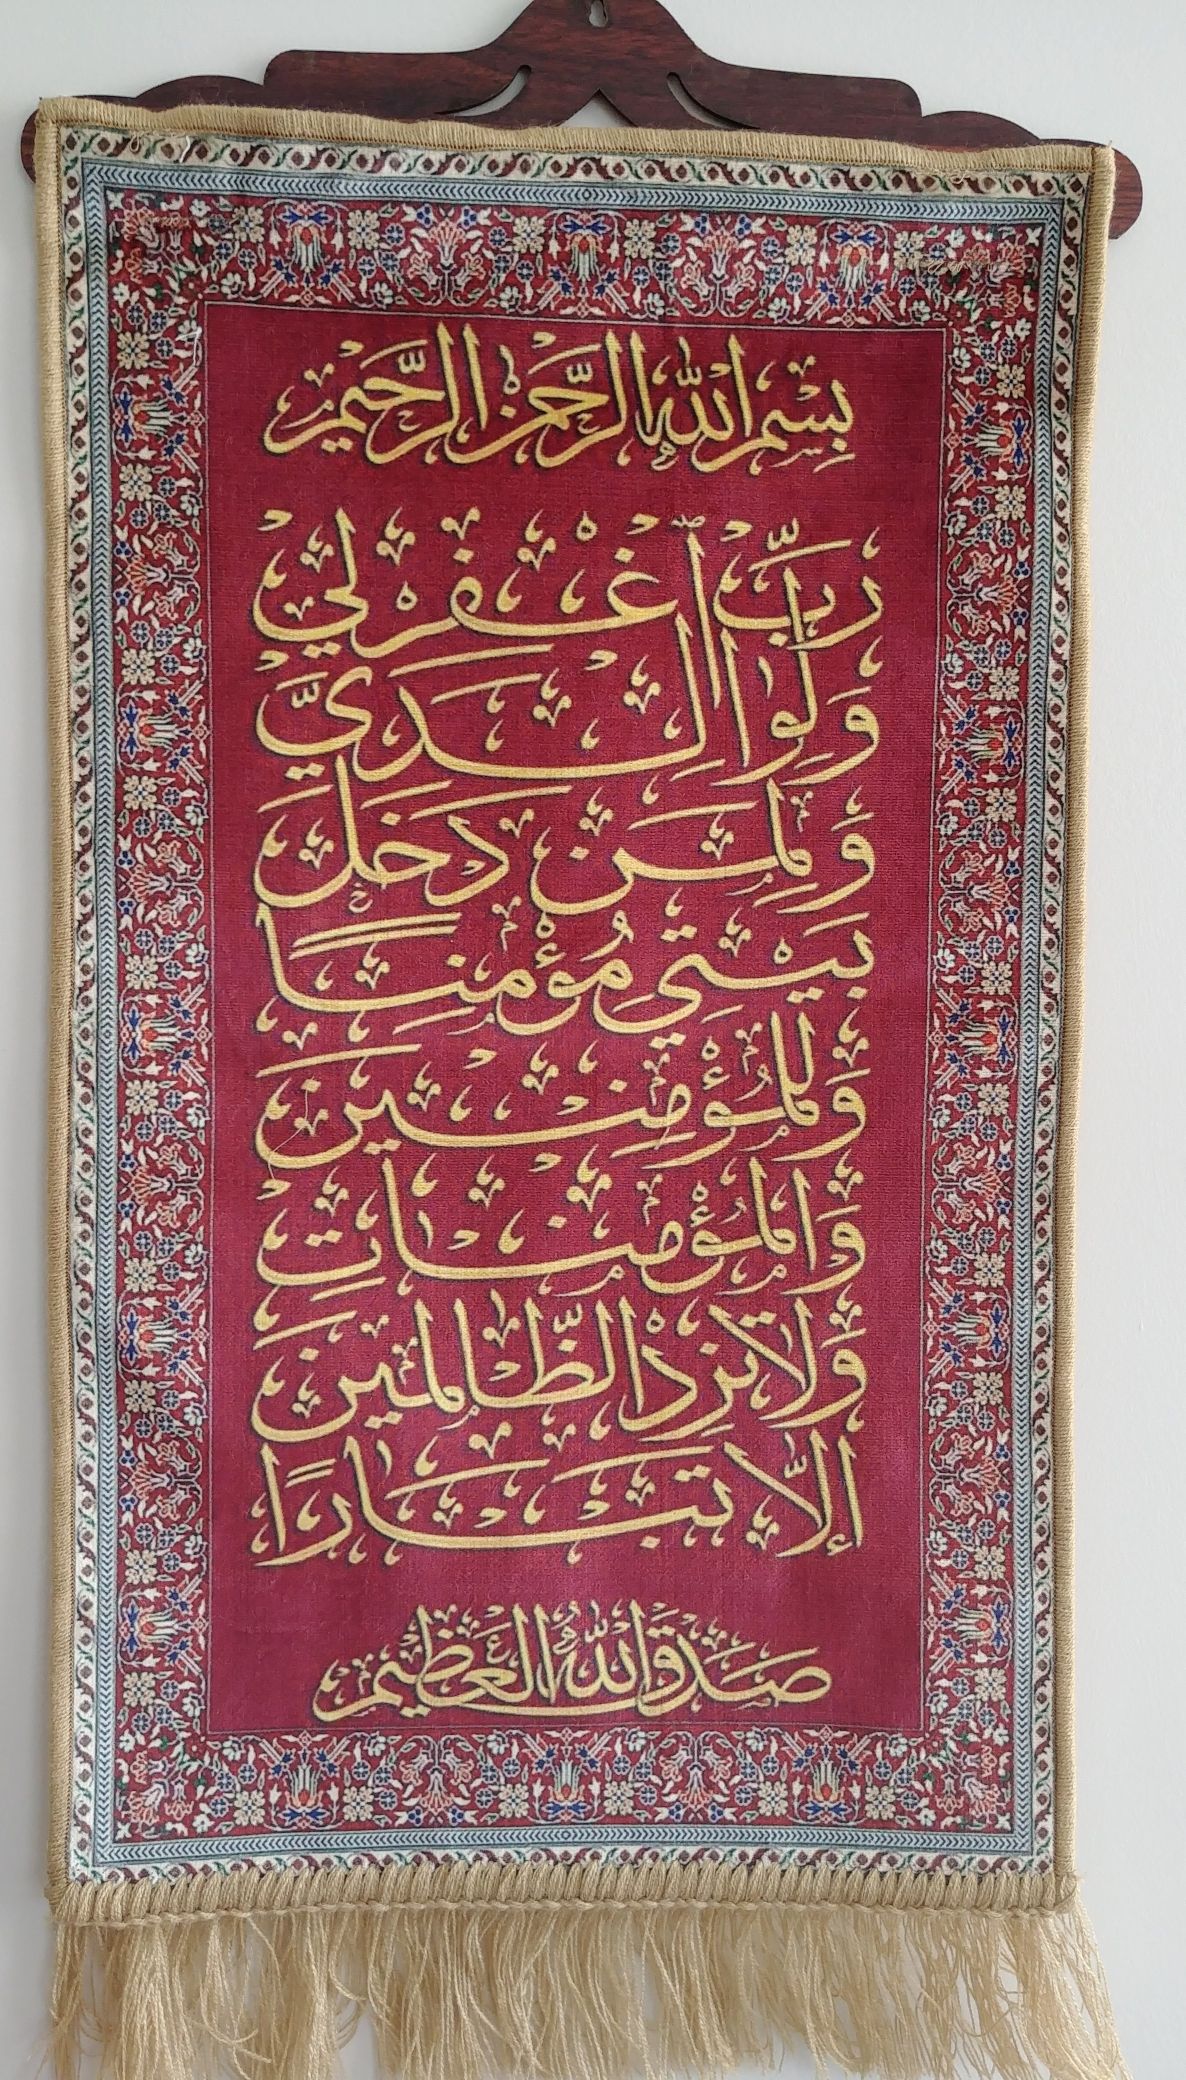 بِسْمِ اللهِ الرَّحْمٰنِ الرَّحِيْمِ
رَبِّ اغْفِرْ لِيْ
وَلِوَالِدَيَّ
وَلِمَنْ دَخَلَ
بَيْتِيَ مُؤْمِنًا
وَلِلْمُؤْمِنِيْنَ
وَالْمُؤْمِنَاتِ
وَلَا تَزِدِ الظَّالِمِيْنَ
إِلَّا تَبَارًا
صَدَقَ اللهُ الْعَظِيْمُ